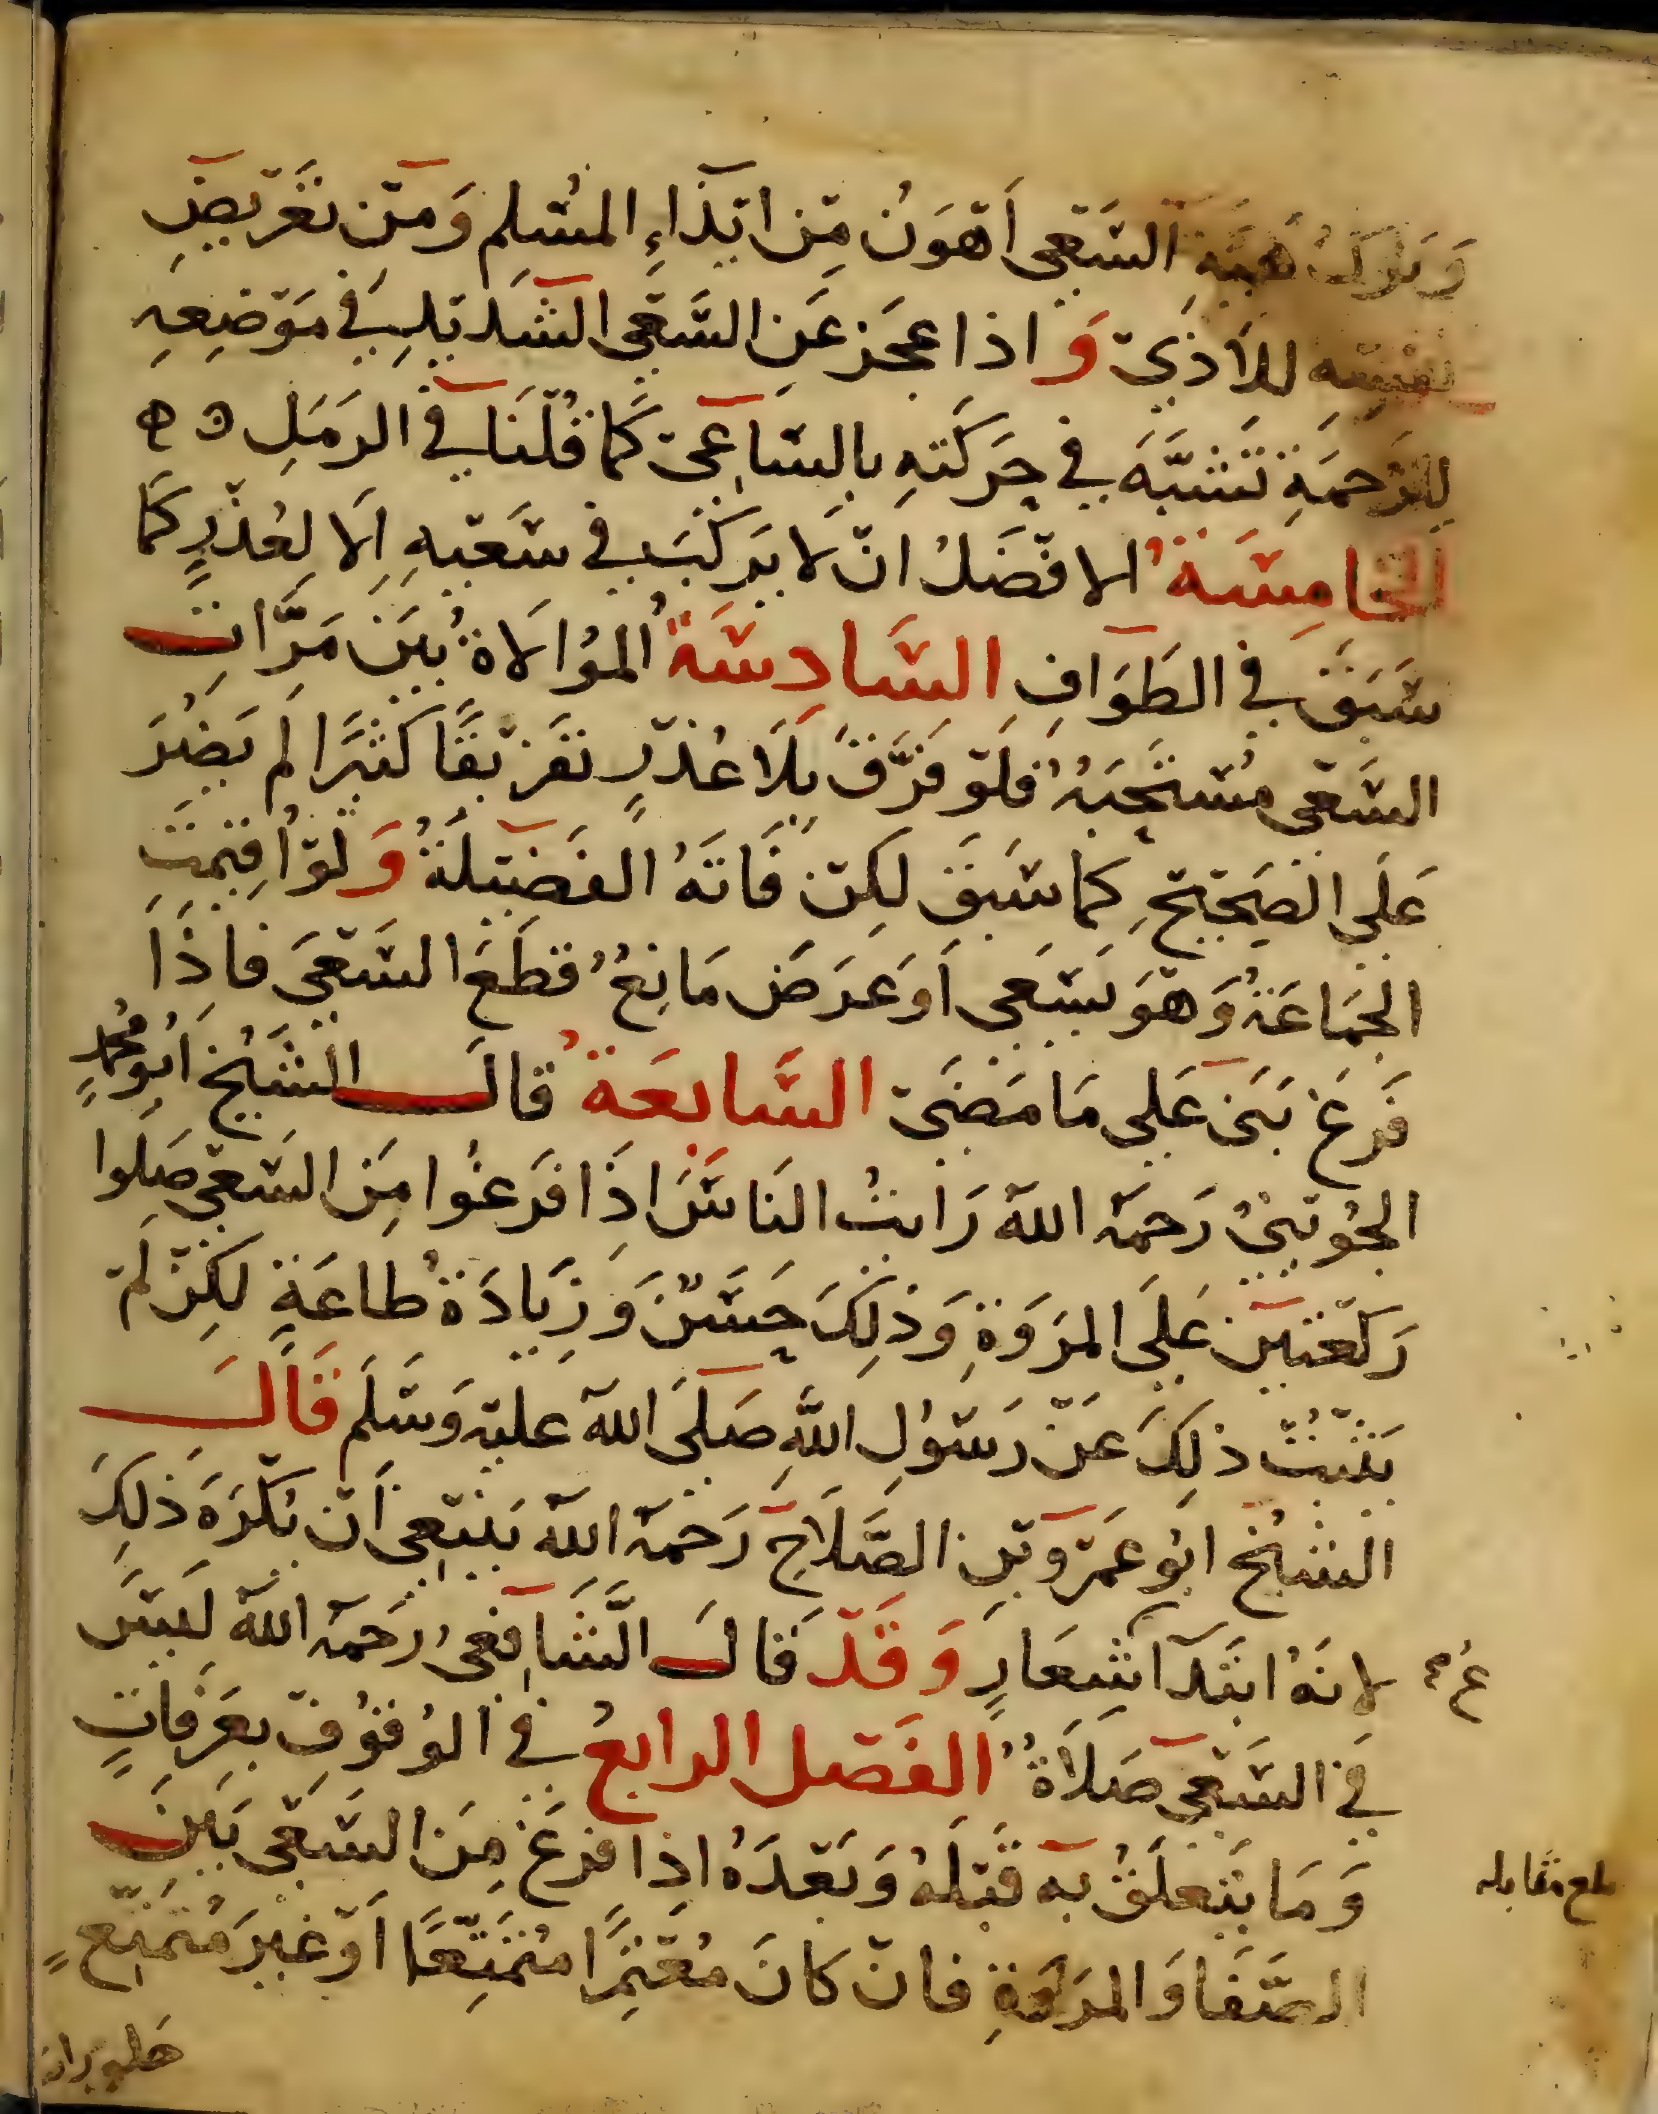 وَتَركُ هَيْئَةِ السَّعْىِ أَهْوَنُ مِنْ ايْذَاءِ المُسْلِمِ وَمِنْ تَعْرِيضِ
نَفْسِهِ للأذَىْ وَاذا عجَز عَن السَّعْىِ الشدِيْدِ فِي مَوْضِعِهِ
للزَحمَةِ تَشَبَّهَ في حَركتهِ بالسَاعِىْ كَما قُلْنَا فِي الرَمَلِ
الخامِسَةُ الافْضَلُ انْ لَا يَركَبَ في سَعْيِهِ اِلَا لِعُذْرٍ كَما
سَبَقَ في الطَوَافِ السَّادِسَةُ المُوَالَاةُ بَيْنَ مَرَّاتِ
السَّعْىِ مُسْتَحَبَةٌ فلَوْ فرَّقَ بلَا عُذْرٍ تَفرِيْقًا كَثيرًا لَم يَضُرَ
عَلَى الصَحِيْحِ كما سَبَقَ لكِنْ فَاتَهُ الفَضِيْلَةُ وَلَوْ اُقِيْمَتِ
الجَمَاعَةُ وَهْوَ يَسْعَى اَو عَرَضَ مَانِعٌ قطَعَ السَّعْىَ فاذَا
فَرغَ بَنَى عَلى مَا مَضَىْ السَّابعَةُ قالَ الشَيْخ اَبُو مُحمدٍ
الجُوَيْنىُ رَحمَهُ اللهُ رَايتُ النَاسَ اِذَا فَرَغُوا مِنَ السَّعْىِ صَلوا
رَكْعَتَيْنِ عَلى المَروَةِ وَذلِكَ حَسَنٌ وَزِيَادَةُ طاعَةٍ لكِنْ لَمْ
يَثْبُتْ ذلِكَ عَنْ رَسُولِ اللهِ صَلَى اللهُ عليْهِ وَسَلَمَ قَالَ
الشيْخ ابُو عَمْرو بْنِ الصَّلَاحِ رَحمَهُ اللهُ يَنْبَغِى أَنْ يُكْرَهَ ذلكَ
لانَهُ ابْتدَآ شِعَارٍ وَقَدْ قَالَ الشَافِعِىُ رَحمَهُ اللهُ لَيْسَ
فِي السَّعْىِ صَلَاةٌ الفَصْل الرابعُ في الوُقوُفِ بعَرَفاتٍ
وَمَا يَتَعلَقُ به قَبْلَهُ وَبَعْدَهُ اذِا فَرغَ مِنَ السَّعْىِ بَيْنَ
الصَّفَا وَالمَروَةِ فانْ كانَ مُعْتَمِرًا مُتَمَتِّعًا اَوْ غَيْرَ مُتَمَتِّعٍ
بلغ مقابله